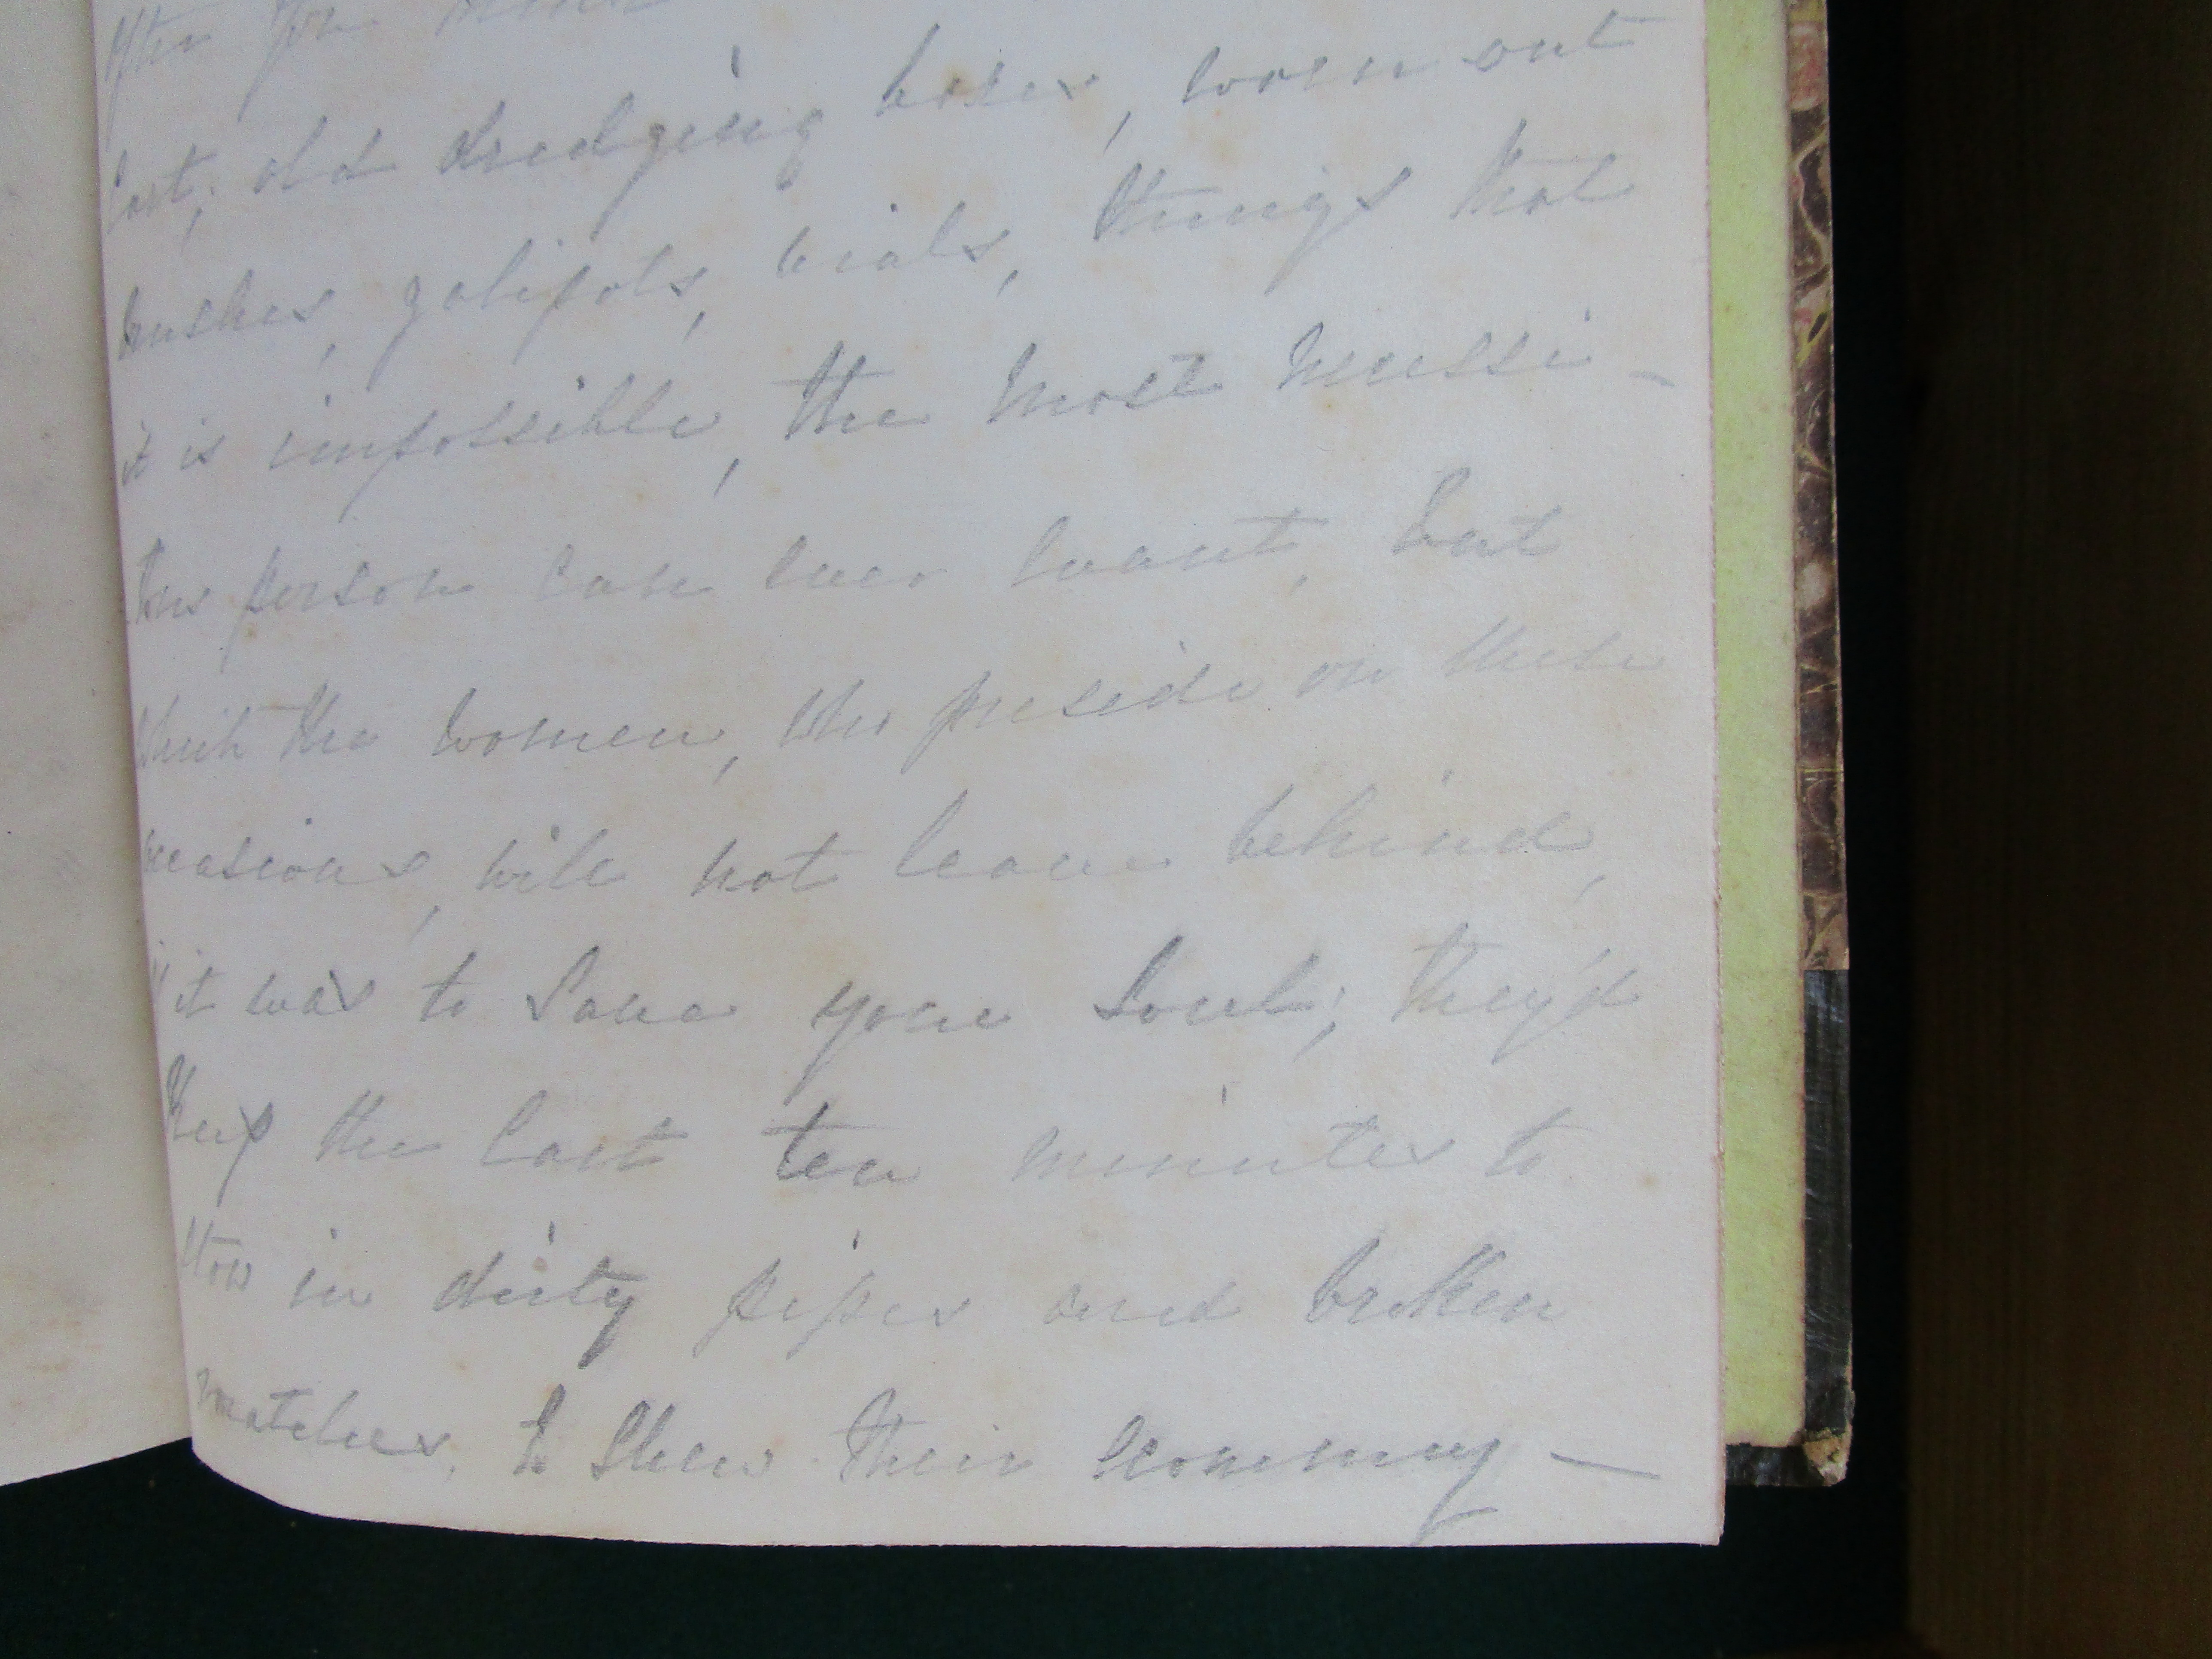 after you
last; old dredging boxes, worn out
brushes, galipots, vials, things that
it is impossible, the most necessi-
tous person can ever want, but
which the women, who preside on these
occasions, will not leave behind,
if it was to save your soul; they'd
keep the last ten minutes to
stow in dirty pipes and broken
matches, to shew their economy —